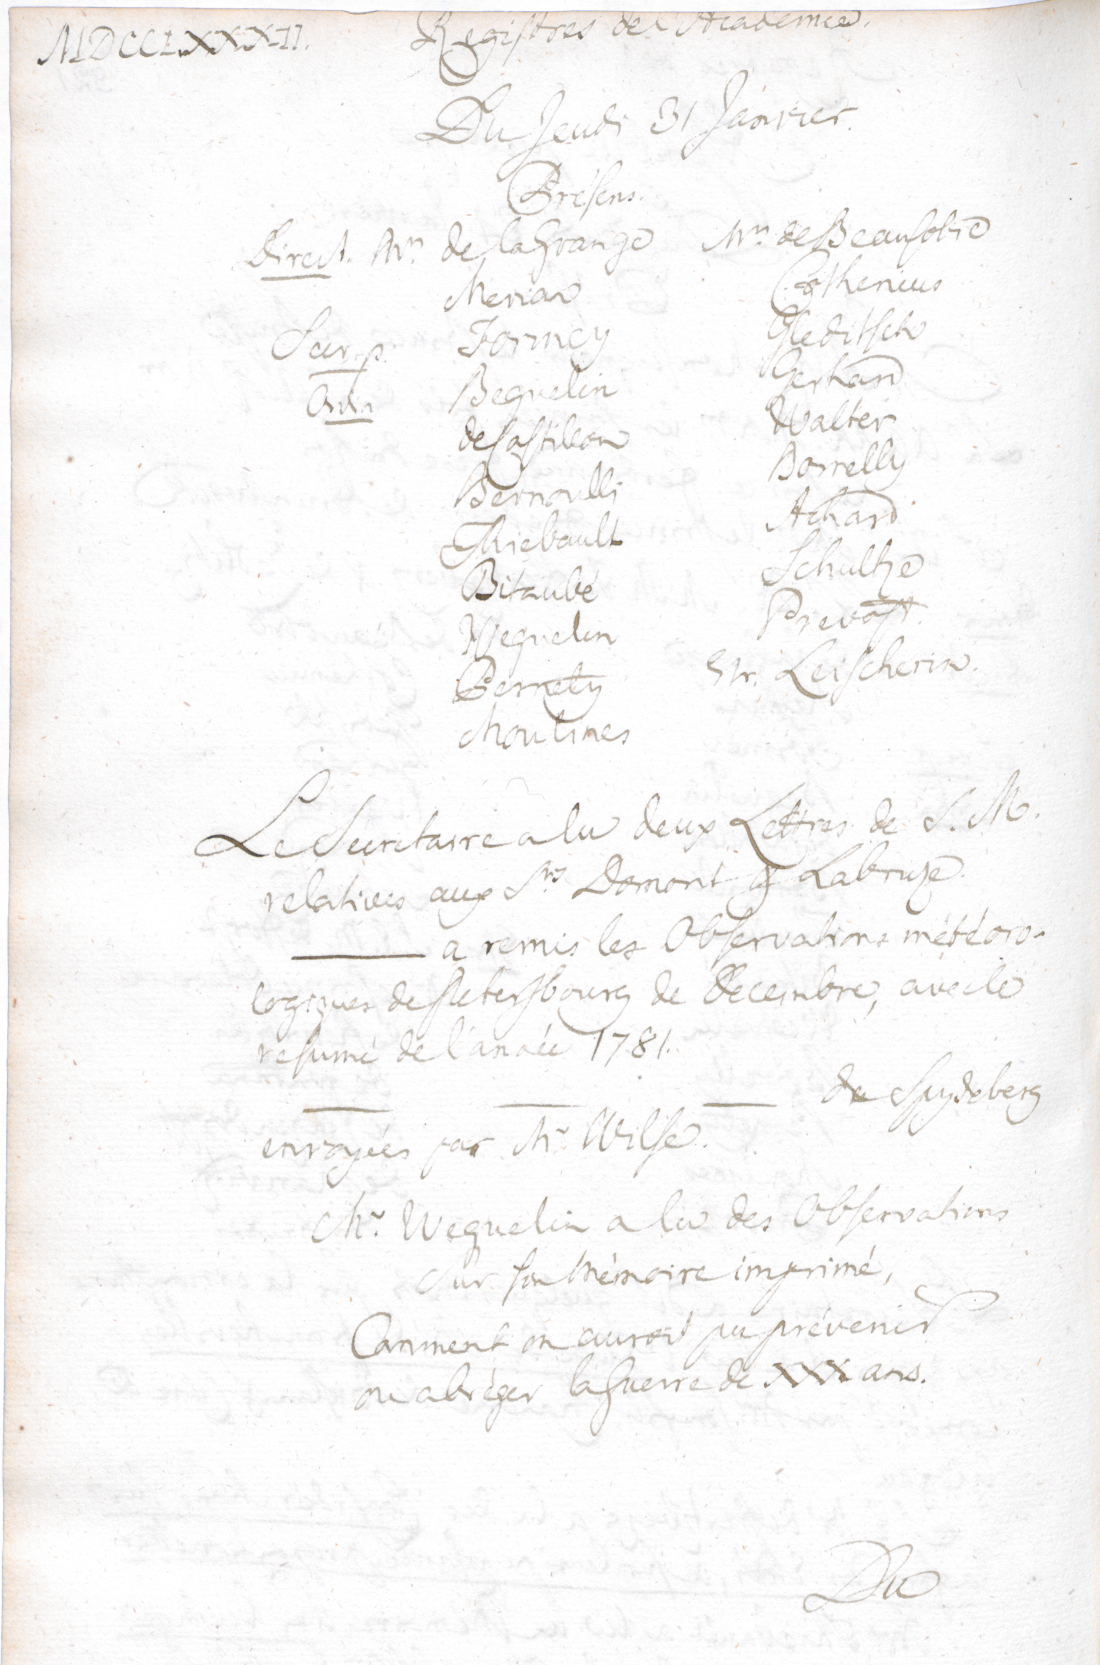 MDCCLXXXII. Registres de l'Academie.
Du Jeudi 31 Janvier.
Présens.
Direct. Mrs de la Grange
Merian
Secr. p. Formey
Beguelin
de Castillon
Bernoulli
Thiebault
Bitaubé
Weguelin
Pernety
Moulines
Mrs de Beausobre
Cothenius
Gleditsch
Gerhard
Walter
Borrelly
Achard
Schultze
Prevost.
Le Secretaire a lu deux Lettres de S. M.
relatives aux Srs Domont & Labruze.
——— a remis les Observations météoro-
logiques de Petersbourg de Decembre, avec le
resumé de l'année 1781.
— — — de Spydeberg
envoyées par Mr. Wilse.
Mr. Weguelin a lu des Observations
sur son Mémoire imprimé,
Comment on auroit pu prévenir
ou abréger la Guerre de XXX ans.
Du